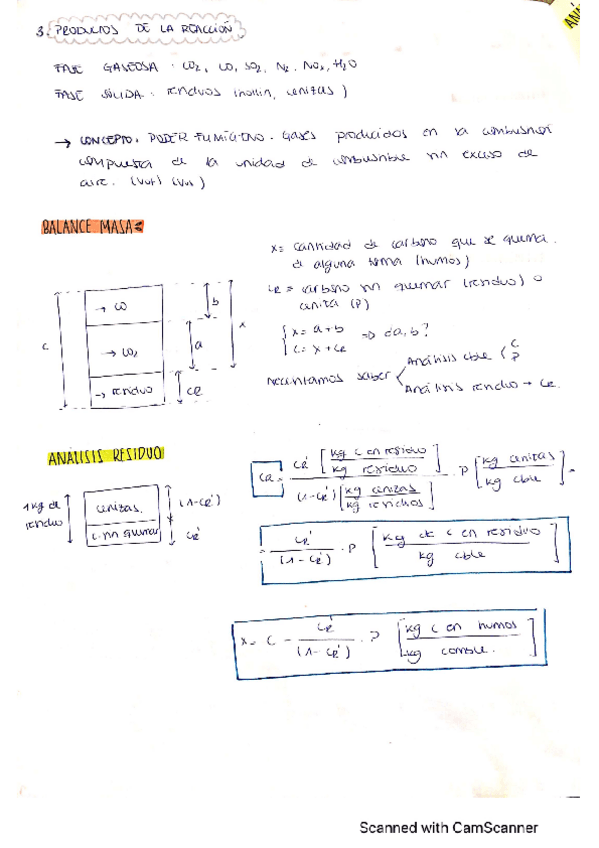 ANÁ
3. PRODUCTOS DE LA REACCIÓN
FASE GASEOSA: CO2, CO, SO2, N2, NOx, H2O
FASE SÓLIDA: residuos (hollín, cenizas)
→ CONCEPTO: PODER FUMÍGENO. Gases producidos en la combustión
completa de la unidad de combustible sin exceso de
aire.
BALANCE MASAS
x = cantidad de carbono que se quema
de alguna forma (humos)
CR = carbono sin quemar (residuo) o
ceniza (P)
{ x = a + b
c = x + CR ⇒ ¿a, b?
Necesitamos saber
Análisis cble < C P
Análisis residuo → CR
c
→ CO
→ CO2
→ residuo
b
a
x
CR
ANÁLISIS RESIDUO
1 kg de
residuo
cenizas
C sin quemar
(1-CR')
CR'
CR = CR' [kg C en residuo / kg residuo] / (1-CR') [kg cenizas / kg residuos] · P [kg cenizas / kg cble] =
= CR' / (1-CR') · P [kg de C en residuo / kg cble]
x = C - CR' / (1-CR') · P [kg C en humos / kg comble.]
Scanned with CamScanner